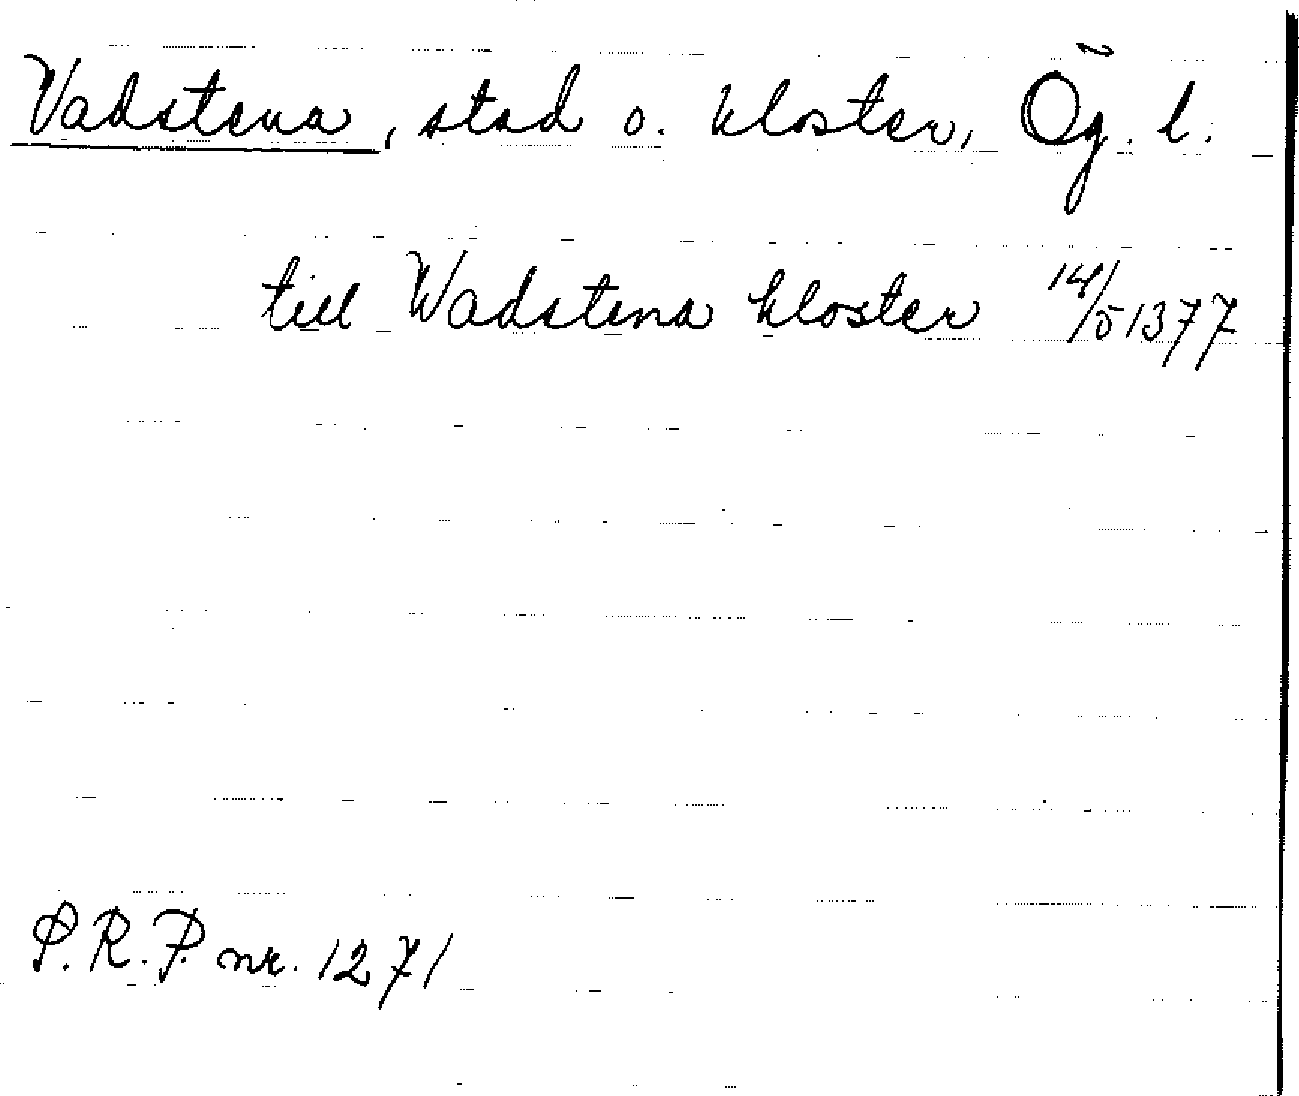 Vadstena, stad o. kloster, Ög. l.
till Wadstena kloster 14/5 1377
S.R.P. nr. 1271